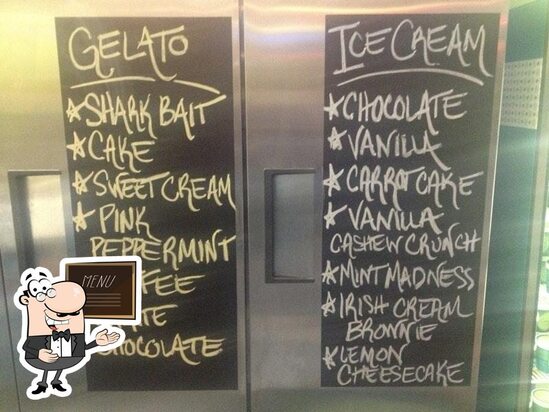 GELATO
★SHARK BAIT
★CAKE
★SWEET CREAM
★PINK
PEPPERMINT
CHOCOLATE
MENU
ICE CREAM
★CHOCOLATE
★VANILLA
★CARROT CAKE
★VANILLA
CASHEW CRUNCH
★MINT MADNESS
★IRISH CREAM
BROWNIE
★LEMON
CHEESECAKE